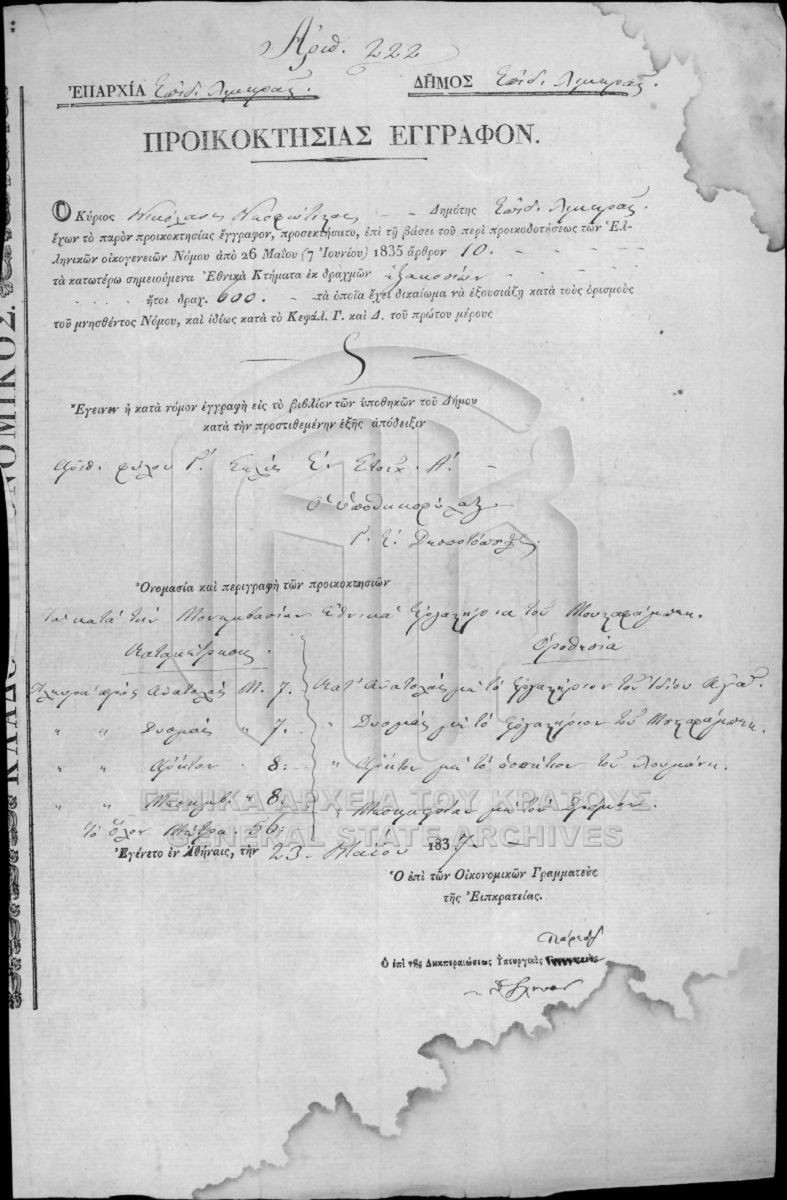 Ἀριθ. 222
ἘΠΑΡΧΊΑ Ἐπιδ. Λιμηρᾶς. ΔΗΜΟΣ Ἐπιδ. Λιμηρᾶς.
ΠΡΟΙΚΟΚΤΗΣΙΑΣ ΕΓΓΡΑΦΟΝ.
Ὁ Κύριος Νικόλαος Δημότης Ἐπιδ. Λιμηρᾶς
ἔχων τὸ παρὸν προικοκτησίας ἔγγραφον, προσεκτήσατο, ἐπὶ τῇ βάσει τοῦ περὶ προικοδοτήσεως τῶν Ἑλ-
ληνικῶν οἰκογενειῶν Νόμου ἀπὸ 26 Μαΐου (7 Ἰουνίου) 1835 ἄρθρον 10.
τὰ κατωτέρω σημειούμενα Ἐθνικὰ Κτήματα ἐκ δραχμῶν ἑξακοσίων
ἤτοι δραχ. 600. τὰ ὁποῖα ἔχει δικαίωμα νὰ ἐξουσιάζῃ κατὰ τοὺς ὁρισμοὺς
τοῦ μνησθέντος Νόμου, καὶ ἰδίως κατὰ τὸ Κεφάλ. Γ. καὶ Δ. τοῦ πρώτου μέρους
Ἔγεινεν ἡ κατὰ νόμον ἐγγραφὴ εἰς τὸ βιβλίον τῶν ὑποθηκῶν τοῦ Δήμου
κατὰ τὴν προστιθεμένην ἑξῆς ἀπόδειξιν
Ἀριθ. φύλου Γ΄. Σελὶς Στοιχ. Α΄.
Ὁ ὑποθηκοφύλαξ
Ὀνομασία καὶ περιγραφὴ τῶν προικοκτησιῶν
Τὰ κατὰ τὴν Μονεμβασίαν Ἐθνικὰ Ἐργαστήρια τοῦ
Καταμέτρησις. Ὁροθεσία
Πλευρὰ πρὸς Ἀνατολὰς Μ. 7. Κατ' Ἀνατολὰς μὲ τὸ ἐργαστήριον τοῦ ἰδίου
" " Δυσμὰς " 7. " Δυσμὰς μὲ τὸ ἐργαστήριον τοῦ
" " Ἄρκτον " 8. " Ἄρκτον μὲ τὸ ὁσπήτιον τοῦ
" " Μεσημβ. " 8. " Μεσημβρίαν μὲ τὸν δρόμον.
Τὸ ὅλον Μέτρα 56.
ΓΕΝΙΚΑ ΑΡΧΕΙΑ ΤΟΥ ΚΡΑΤΟΥΣ
GENERAL STATE ARCHIVES
Ἐγένετο ἐν Ἀθήναις, τὴν 23 Μαΐου 1837
Ὁ ἐπὶ τῶν Οἰκονομικῶν Γραμματεὺς
τῆς Ἐπικρατείας.
Πάρεδρ
Ὁ ἐπὶ τῆς Ἐκκπεραιώσεως Ὑπουργικὸς